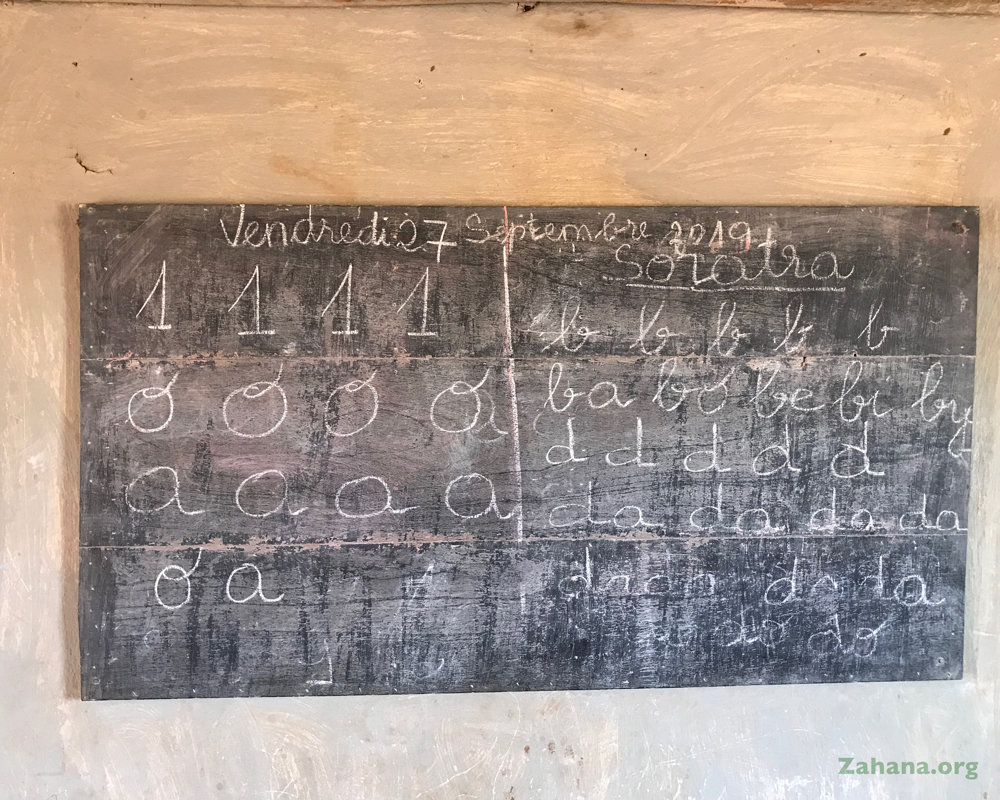 Vendredi 27 Septembre 2019
1 1 1 1
o o o o
a a a a
o a
Soratra
b b b b b
ba bo be bi by
d d d d d
da da da da
dada dada
do do
Zahana.org